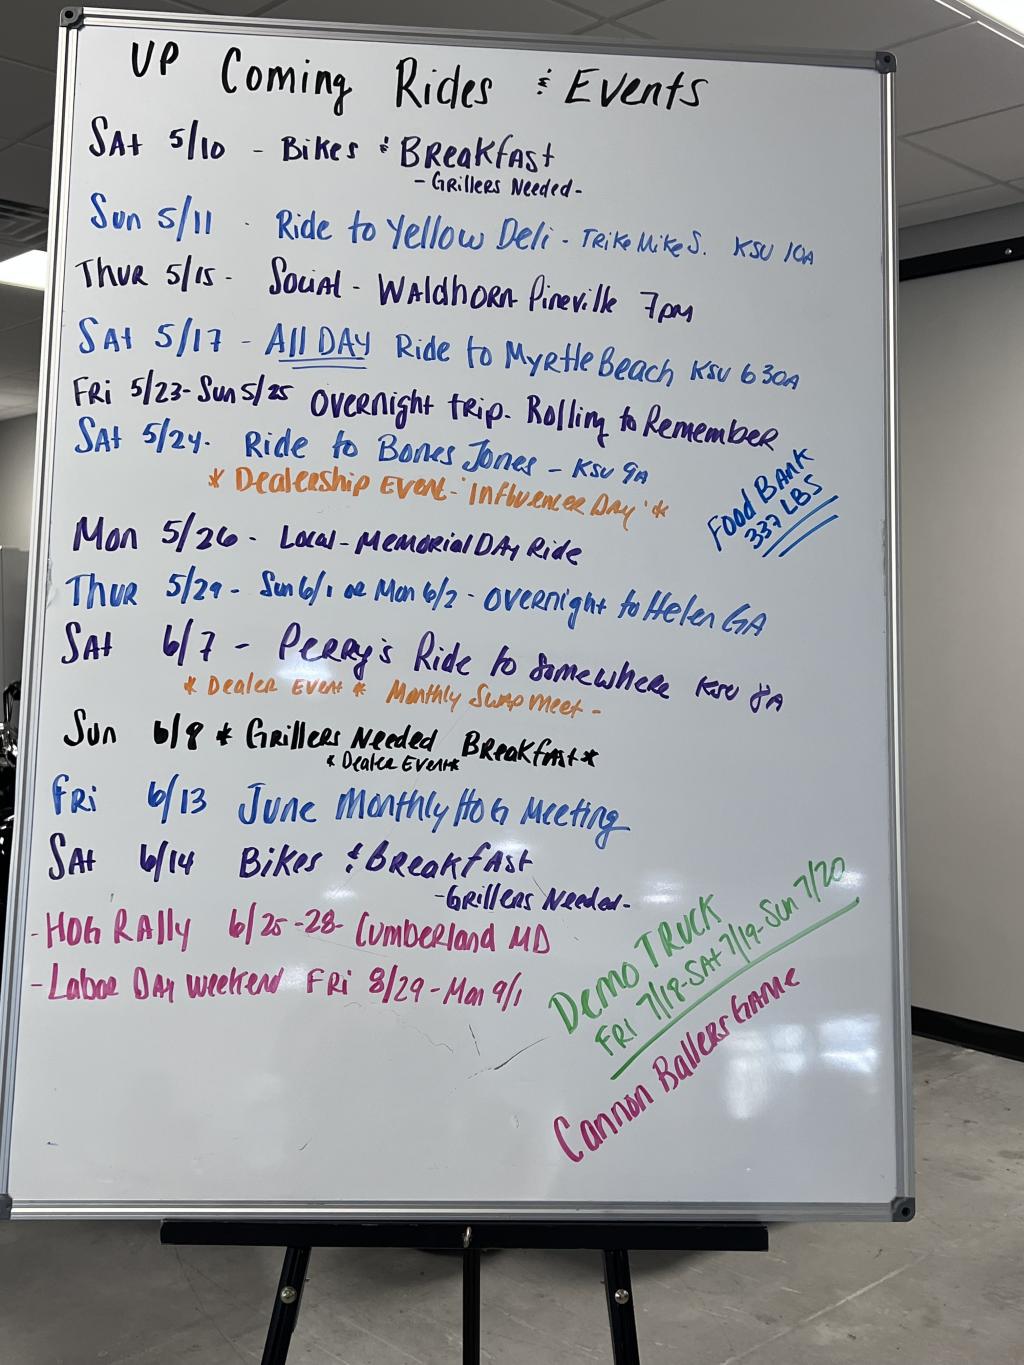 UP Coming Rides & Events
SAt 5/10 - Bikes & BReakfASt
- GRilleRs Needed -
Sun 5/11 - Ride to Yellow Deli - TRike Mike S. KSU 10A
THUR 5/15 - Social - WALdHORN Pineville 7pm
SAt 5/17 - All DAY Ride to MyRtle Beach KSU 630A
FRi 5/23 - Sun 5/25 OVERNight tRip - Rolling to Remember
SAt 5/24 - Ride to Bones Jones - KSU 9A
* DealeRship EVENt - "INflueNceR DAy" *
FOOd BANK
337 LBS
Mon 5/26 - Local - MeMoRial DAy Ride
THUR 5/29 - Sun 6/1 oR Mon 6/2 - OVERNight to Helen GA
SAt 6/7 - PeRRy's Ride to Somewhere KSU 8A
* DealeR EVENt * Monthly SwAp Meet -
Sun 6/8 * GRilleRs Needed BReakfASt *
* DealeR EVENt *
FRi 6/13 June Monthly HOG Meeting
SAt 6/14 Bikes & BReakfASt
- GRilleRs Needed -
- HOG RAlly 6/25 - 28 - CumbeRland MD
- LaboR DAy weekend FRi 8/29 - Mon 9/1
Demo TRUCK
FRi 7/18 - SAt 7/19 - Sun 7/20
Cannon BalleRs GAMe